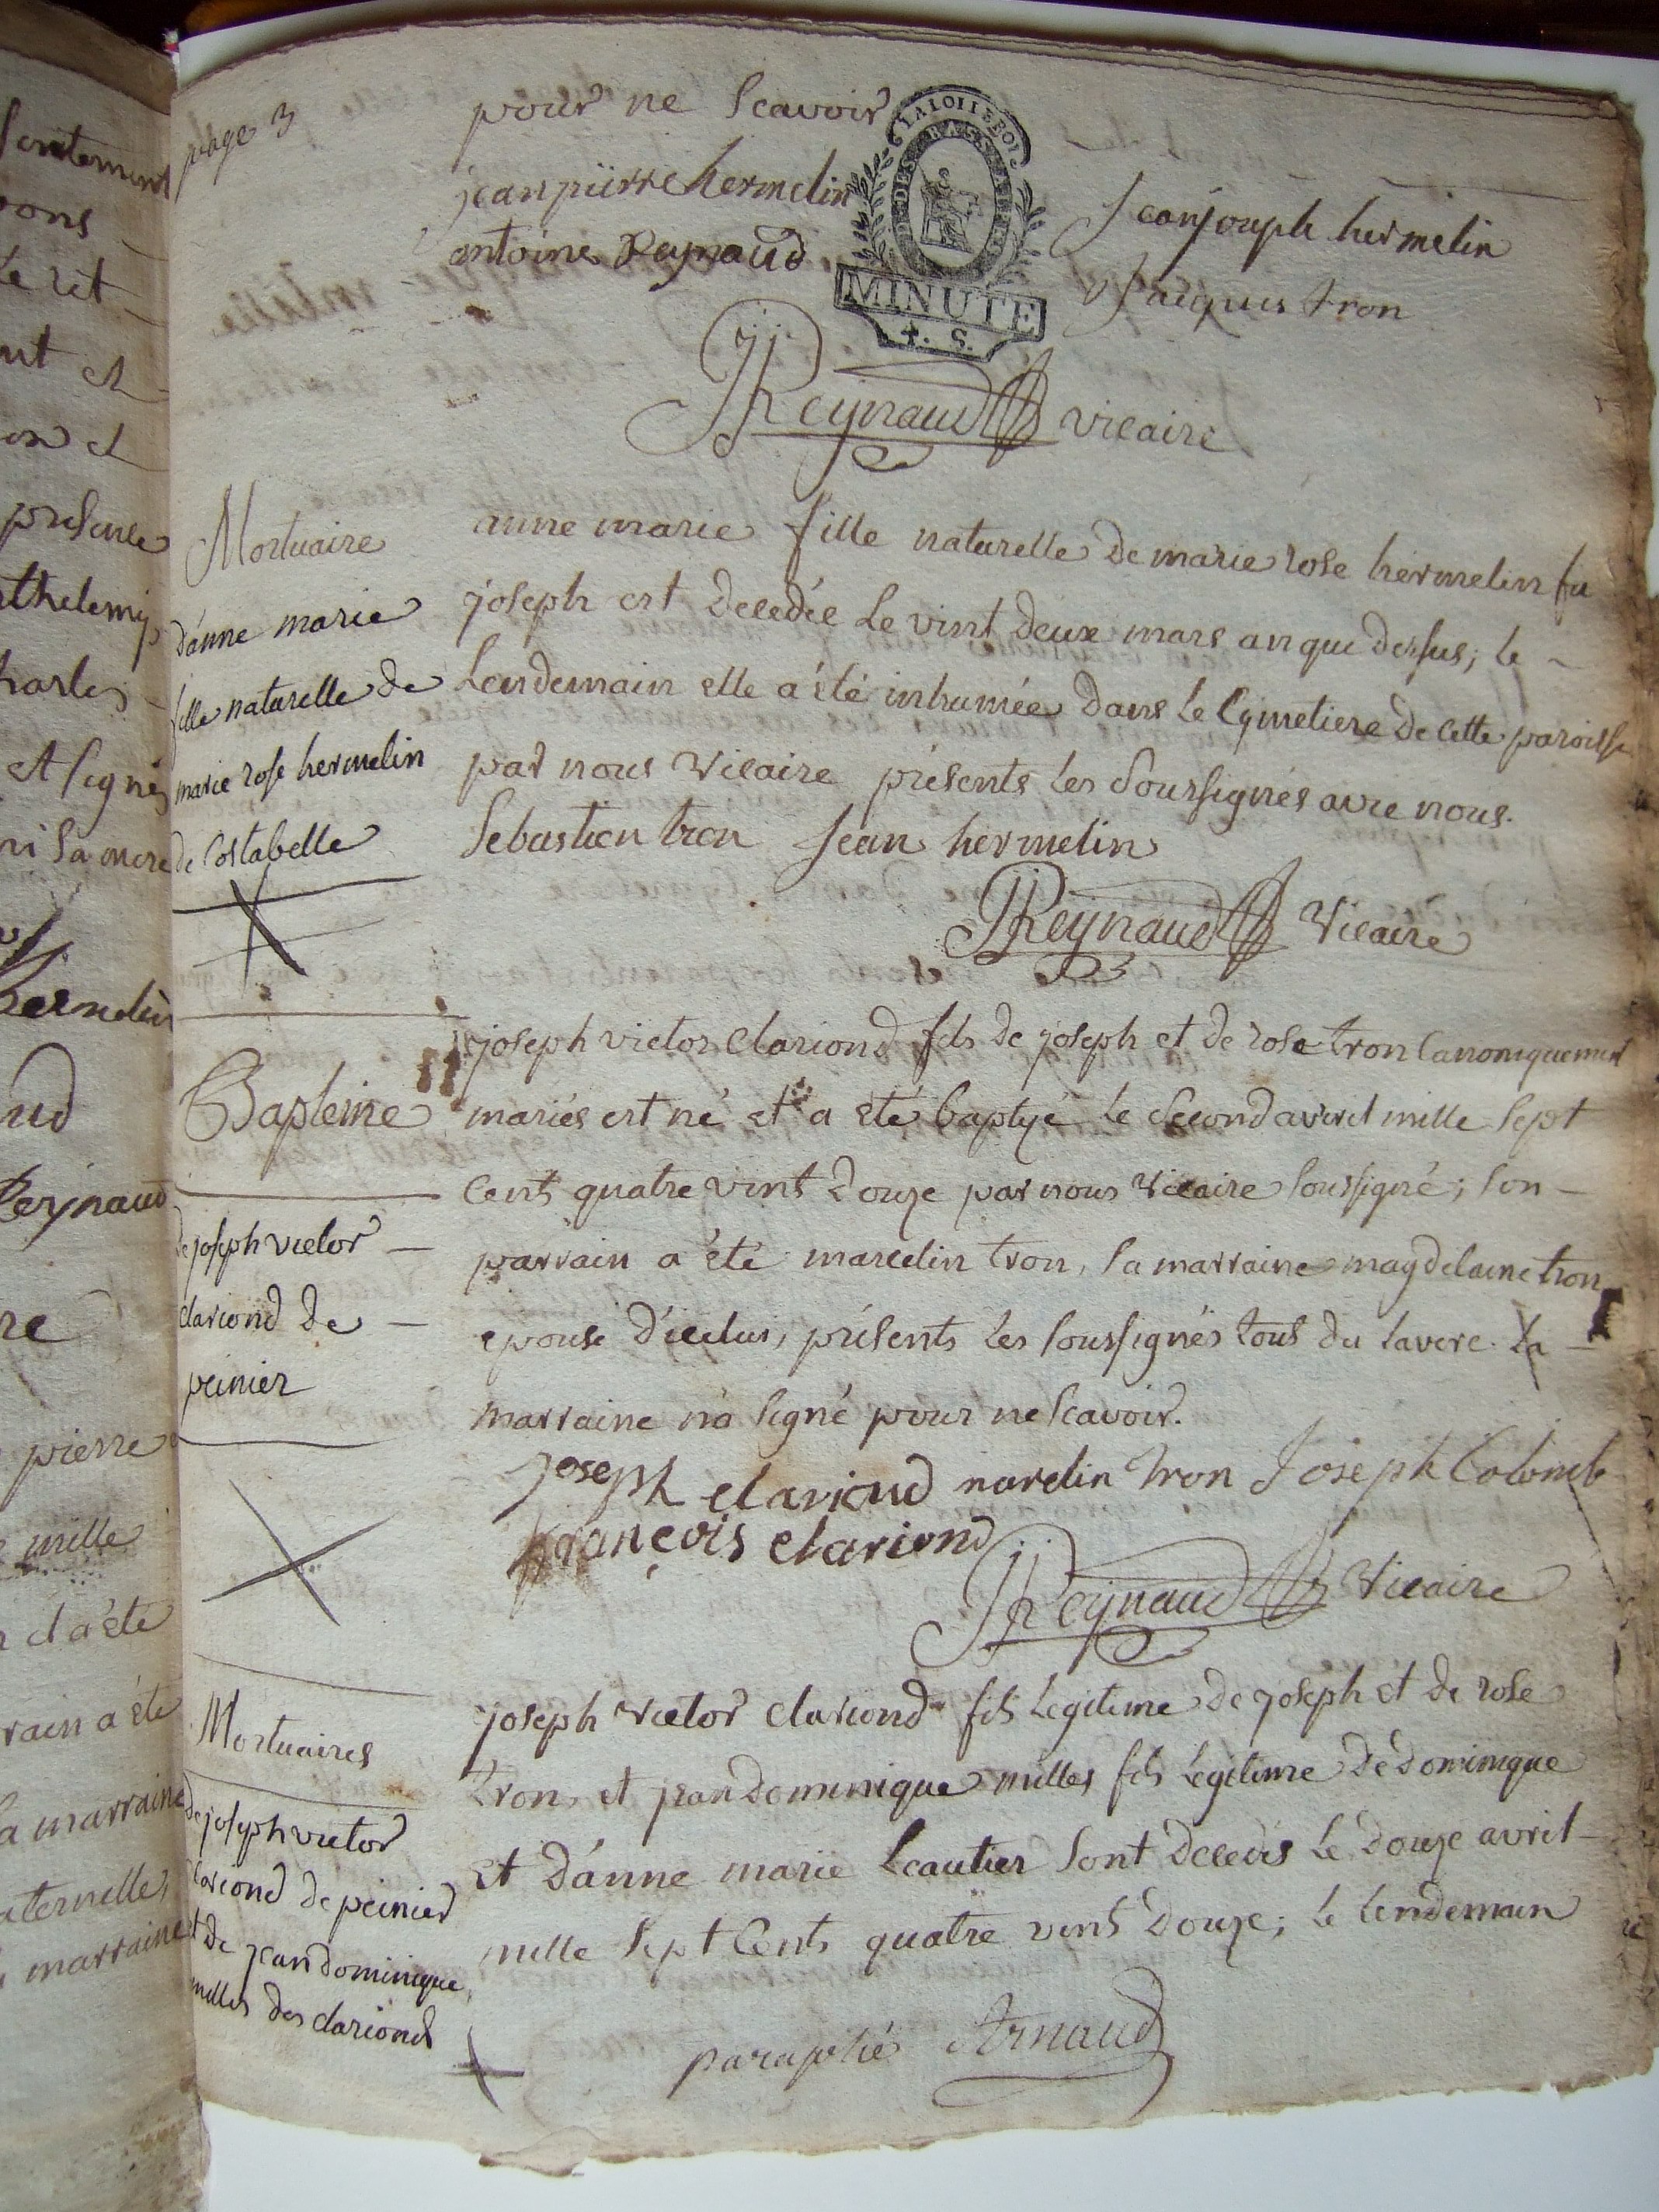 page 3
pour ne scavoir
LA LOI LE ROI
MINUTE
4. S.
jean piirre hermelin
jean joseph hermelin
antoine Reynaud
jacques tron
JReynaud vicaire
Mortuaire
d'anne marie
fille naturelle de
marie rose hermelin
de Costabelle
anne marie fille naturelle de marie rose hermelin fu
joseph est decedée le vint deux mars an que dessus; le
Lendemain elle a été inhumée dans le Cymetiere de cette paroisse
par nous vicaire présents les soussignés avec nous.
sebastien tron jean hermelin
JReynaud vicaire
Bapteme
de joseph victor
clariond de
peinier
joseph victor clariond fils de joseph et de rose tron canoniquement
mariés est né et a été baptisé le second avril mille sept
cents quatre vint douze par nous vicaire soussigné; son
parrain a été marcelin tron, la marraine magdelaine tron
epouse d'icelui, présents les soussignés tous du laverc. la
marraine n'a signé pour ne scavoir.
joseph clariond marcelin tron Joseph Colomb
françois clariond
JReynaud vicaire
Mortuaires
de joseph victor
clariond de peinier
et de jean dominique
milles des clarionds
joseph victor clariond fils legitime de joseph et de rose
tron, et jean dominique milles fils légitime de dominique
et d'anne marie Leautier sont decedés le douze avril
mille sept cents quatre vint douze; le lendemain
paraphé Arnaud